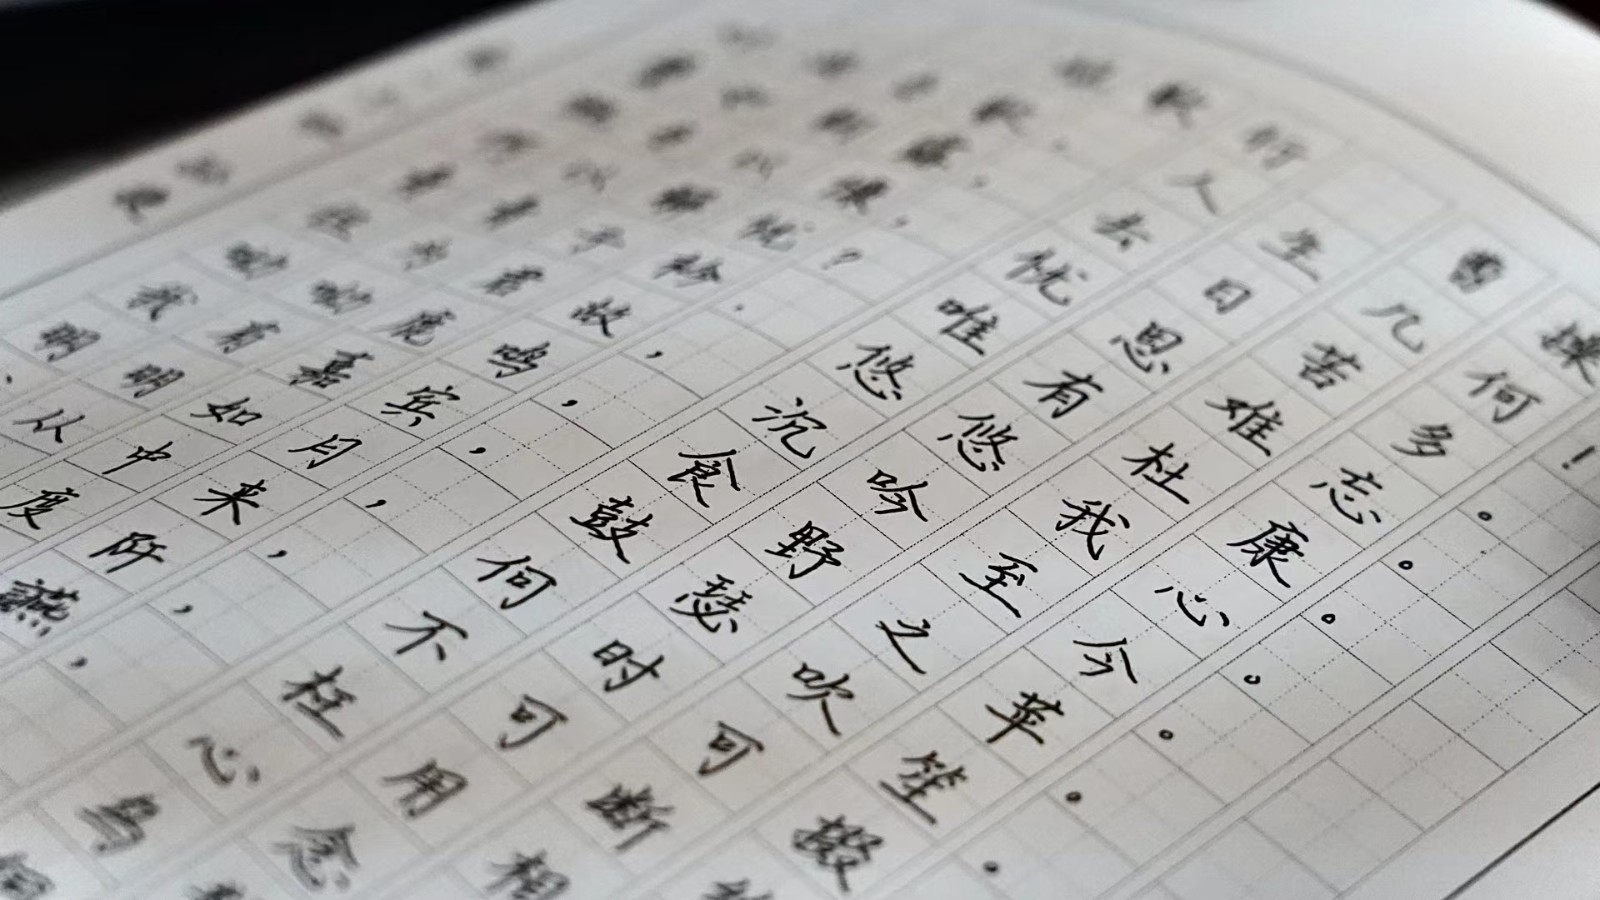 短歌行
曹操
对酒当歌,人生几何!
譬如朝露,去日苦多。
慨当以慷,忧思难忘。
何以解忧?唯有杜康。
青青子衿,悠悠我心。
但为君故,沉吟至今。
呦呦鹿鸣,食野之苹。
我有嘉宾,鼓瑟吹笙。
明明如月,何时可掇
从中来,不可断
度阡,枉用相
讌,心念
乌